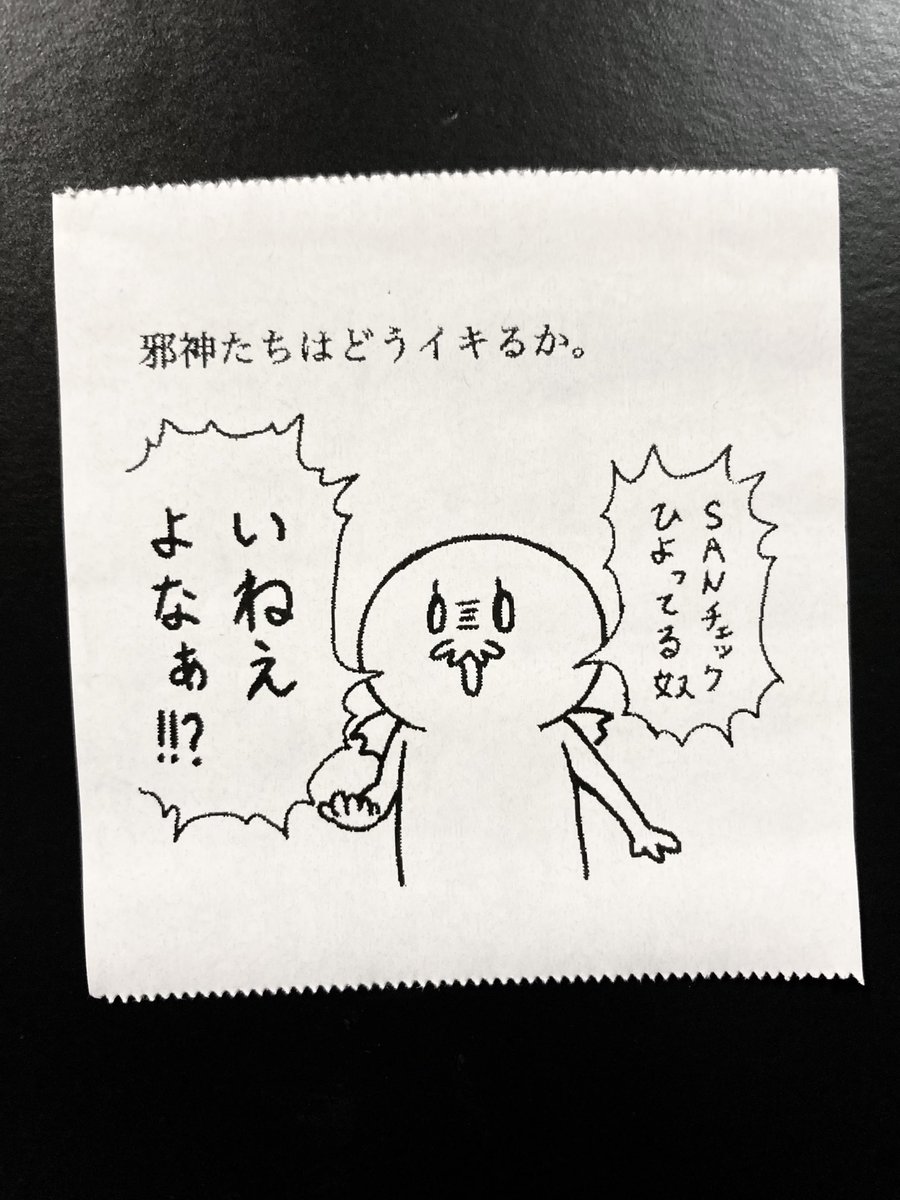 邪神たちはどうイキるか。
SANチェック
ひよってる奴
いねえ
よなぁ!!?